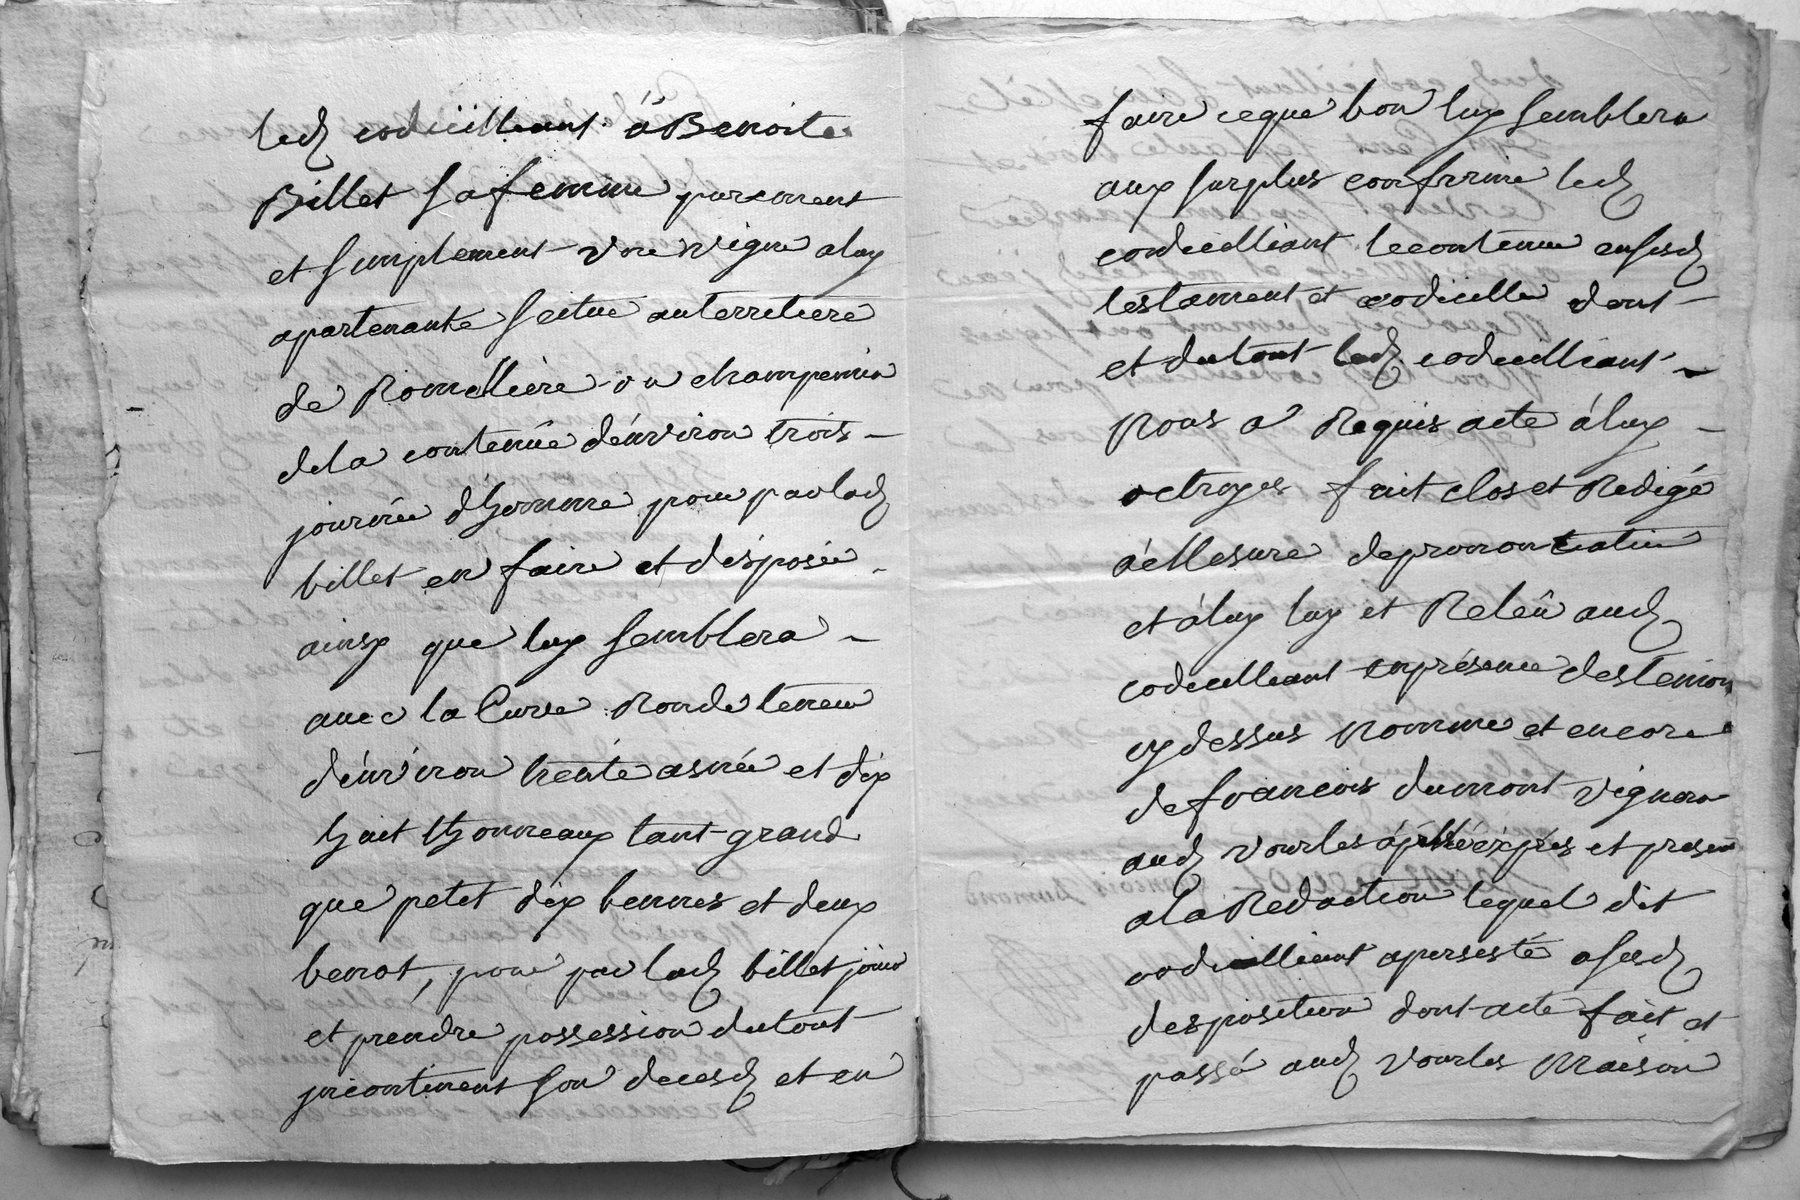 led codicilleant à Benoite
Billet sa femme purement
et simplement une vigne a luy
apartenante scitue au territiere
de Romelliere ou champenin
de la contenüe dénviron trois
journée d'homme pour par lad
billet en faire et disposée
ainsy que luy semblera
avec la Cuve Ronde teneu
dénviron trente asnée et dix
huit thonneaux tant grand
que petit dix bennes et deux
benot, pour par lad billet jouir
et prendre possession du tout
jncontinent son decesd et en
faire ce que bon luy semblera
aux surplus confirme led
codicilliant le contenu en sesd
testament et codicille dont
et du tout led codicilliant
Nous a Requis acte à luy
octroyes fait clos et Redigé
à Mesure de prononciation
et à luy luy et Releû aud
codicilleant en présence des temoin
cy dessus Nomme et encore
de francois dumont vigneron
aud vourles et present
a la Redaction lequel dit
codicilliant a persesté a sesd
desposition dont acte fait et
passé aud vourles Maison